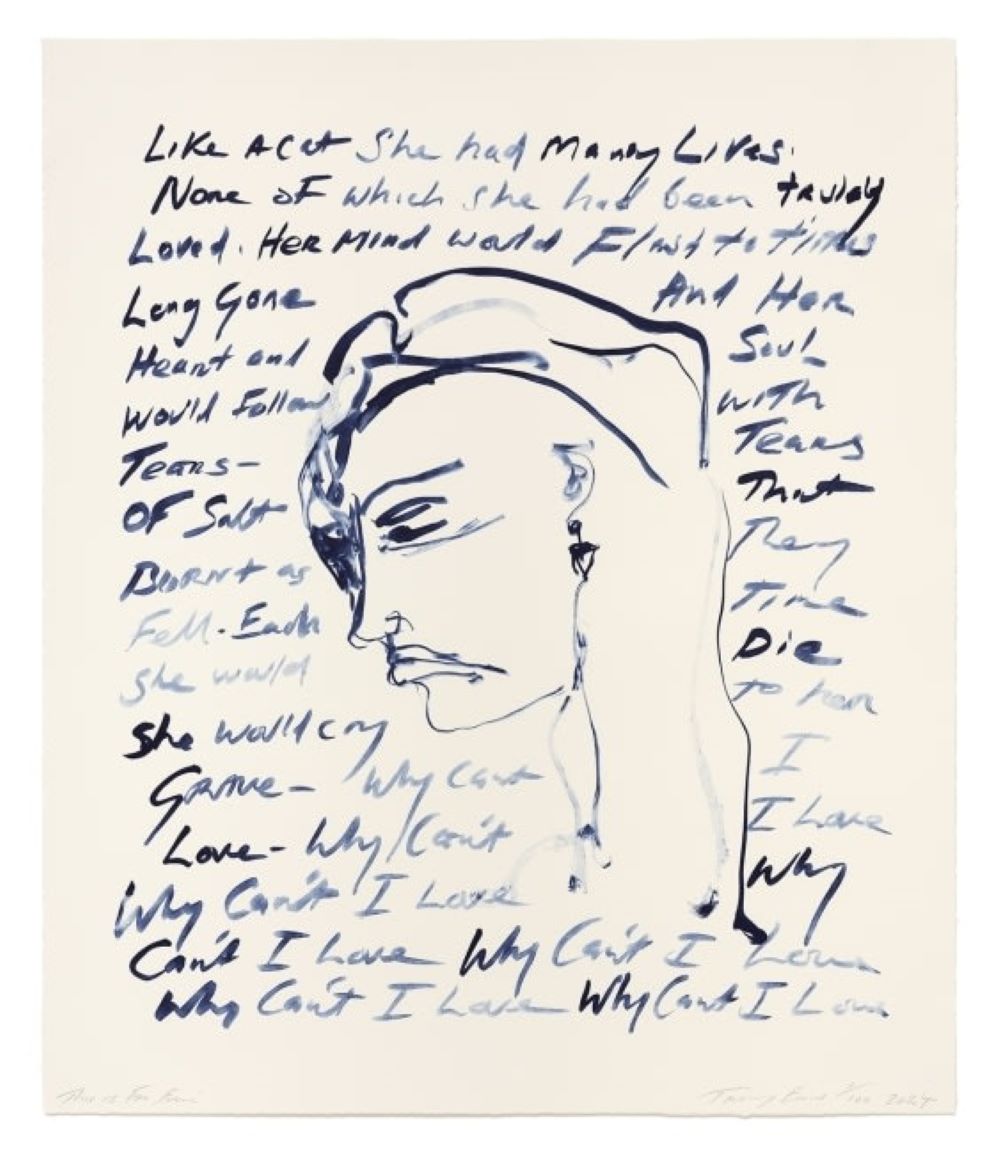 Like A Cat She had Many Lives.
None OF which she had been truley
Loved. Her Mind would Float to times
Long Gone And Her
Heart and Soul
Would Follow with
Tears- Tears
OF Salt That
Burnt as They
Fell. Each Time
she would Die
she would cry to her
Grave- Why Can't I
Love- Why Can't I Love
Why Can't I Love Why
Can't I Love Why Can't I Love
Why Can't I Love Why Can't I Love
2024